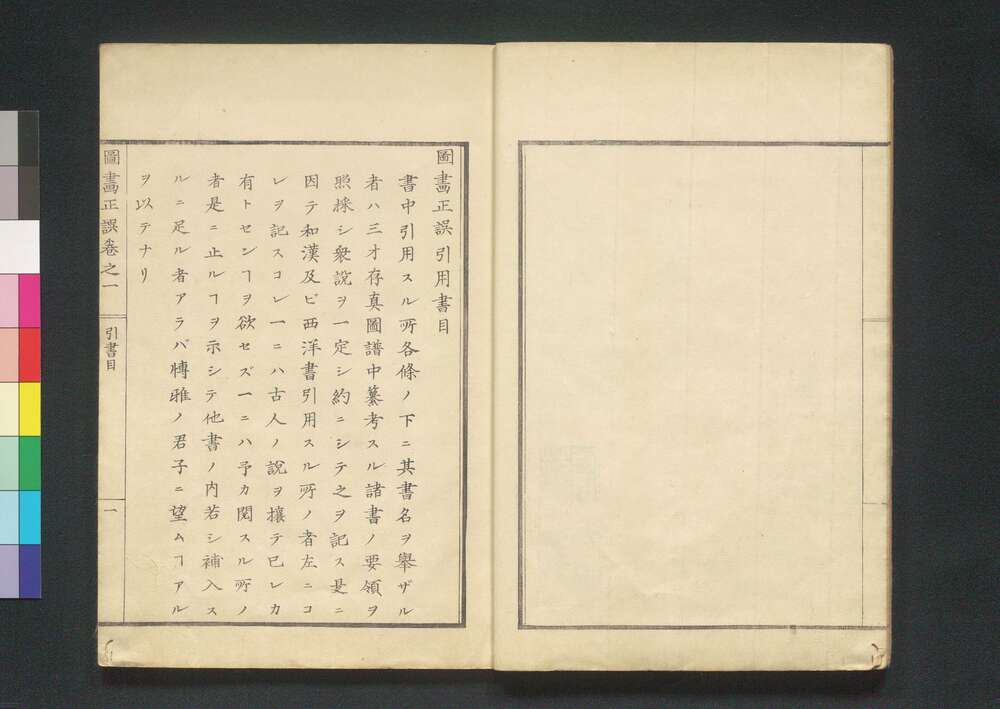 圖畵正誤引用書目
書中引用スル所各條ノ下ニ其書名ヲ擧ザル
者ハ三才存真圖譜中纂考スル諸書ノ要領ヲ
照採シ衆說ヲ一定シ約ニシテ之ヲ記ス是ニ
因テ和漢及ビ西洋書引用スル所ノ者左ニコ
レヲ記スコレ一ニハ古人ノ說ヲ攘テ已レカ
有トセンヿヲ欲セズ一ニハ予カ閱スル所ノ
者是ニ止ルヿヲ示シテ他書ノ内若シ補入ス
ルニ足ル者アラバ博雅ノ君子ニ望ムヿアル
ヲ以テナリ
圖畵正誤卷之一
引書目
一